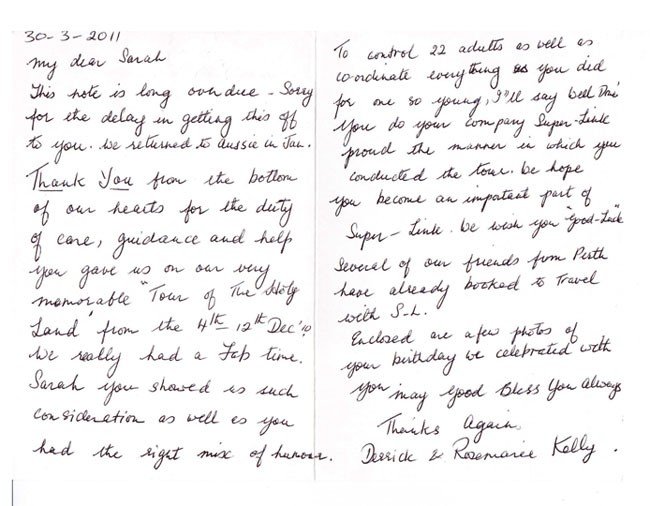 30-3-2011
My dear Sarah
This note is long over due - Sorry
for the delay in getting this off
to you. We returned to Aussie in Jan.
Thank You from the bottom
of our hearts for the duty
of care, guidance and help
you gave us on our very
memorable "Tour of The Holy
Land" from the 4th - 12th Dec '10
We really had a Fab time.
Sarah you showed us such
consideration as well as you
had the right mix of humour.
To control 22 adults as well as
co-ordinate everything as you did
for one so young, I'll say Well Done
You do your company Super-Link
proud the manner in which you
conducted the tour. We hope
you become an important part of
Super-Link. We wish you "Good-Luck"
Several of our friends from Perth
have already booked to Travel
with S-L.
Enclosed are a few photos of
your birthday we celebrated with
you May Good Bless You Always
Thanks Again,
Derrick & Rosemarie Kelly.